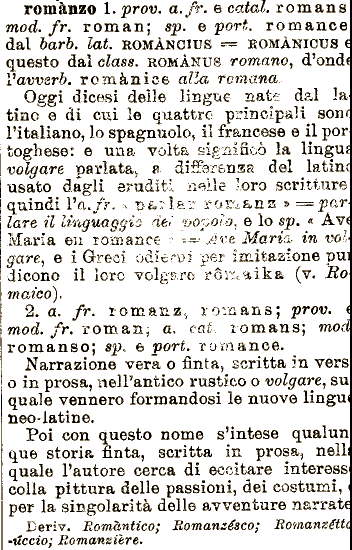 romànzo 1. prov. a. fr. e catal. romans
mod. fr. roman; sp. e port. romance
dal barb. lat. ROMÀNCIUS = ROMÀNICUS e
questo dal class. ROMÀNUS romano, d'onde
l'avverb. romànice alla romana.
Oggi dicesi delle lingue nate dal la-
tino e di cui le quattro principali sono
l'italiano, lo spagnuolo, il francese e il por-
toghese: e una volta significò la lingua
volgare parlata, a differenza del latino
usato dagli eruditi nelle loro scritture
quindi l'a. fr. « parlar romanz » = par-
lare il linguaggio del popolo, e lo sp. « Ave
Maria en romance » = Ave Maria in vol-
gare, e i Greci odierni per imitazione pur
dicono il loro volgare rômaika (v. Ro-
maico).
2. a. fr. romanz, romans; prov. e
mod. fr. roman; a. cat. romans; mod
romanso; sp. e port. romance.
Narrazione vera o finta, scritta in vers
o in prosa, nell'antico rustico o volgare, su
quale vennero formandosi le nuove lingue
neo-latine.
Poi con questo nome s'intese qualun-
que storia finta, scritta in prosa, nella
quale l'autore cerca di eccitare interesse
colla pittura delle passioni, dei costumi, e
per la singolarità delle avventure narrate
Deriv. Romàntico; Romanzésco; Romanzétto
-úccio; Romanzière.